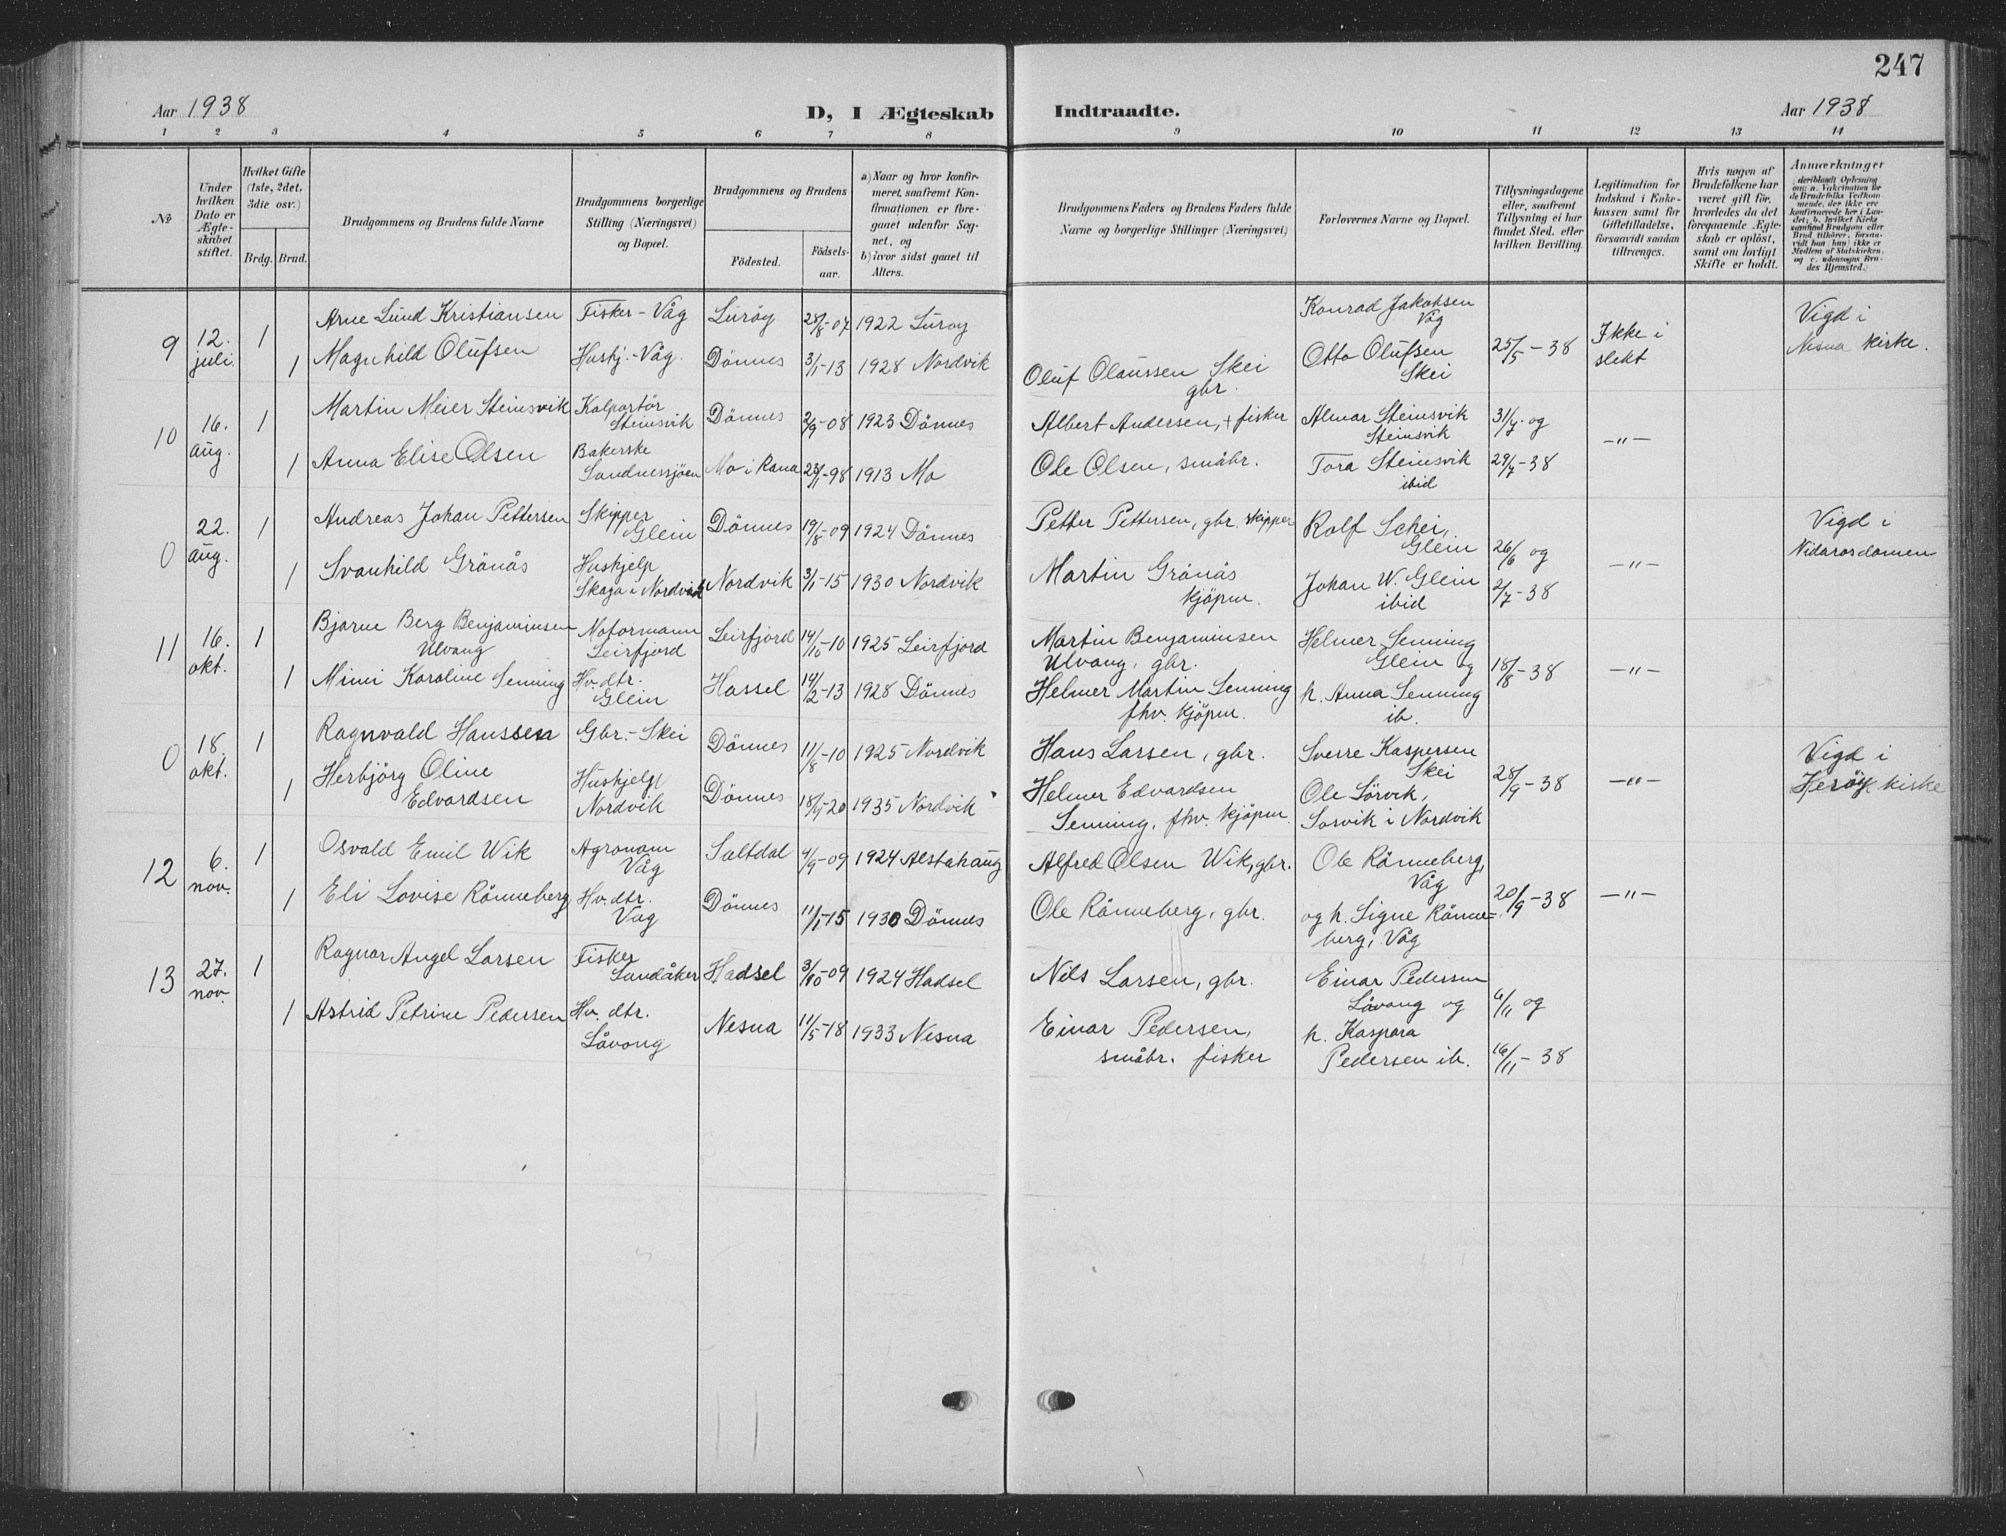 247
Aar 1938 D, I Ægteskab Indtraadte. Aar 1938
1 2 3 4 5 6 7 8 9 10 11 12 13 14
№
Under hvilken Dato er Ægteskabet stiftet.
Hvilket Gifte (1ste, 2det, 3die osv.)
Brdg. Brud.
Brudgommens og Brudens fulde Navne
Brudgommens borgerlige Stilling (Næringsvei) og Bopæl.
Brudgommens og Brudens
Födested. Födselsaar.
a) Naar og hvor konfirmeret, saafremt Konfirmationen er foregaaet udenfor Sognet, og
b) hvor sidst gaaet til Alters.
Brudgommens Faders og Brudens Faders fulde Navne og borgerlige Stillinger (Næringsvei)
Forlovernes Navne og Bopæl.
Tillysningsdagene eller, saafremt Tillysning ei har fundet Sted, efter hvilken Bevilling.
Legitimation for Indskud i Enkekassen samt for Giftetilladelse, forsaavidt saadan tiltrænges.
Hvis nogen af Brudefolkene har været gift för, hvorledes da det foregaaende Ægteskab er oplöst, samt om lovligt Skifte er holdt.
Anmærkninger
9 12. juli. 1 Arne Lund Kristiansen Fisker - Våg Luröy 28/8-07 1922 Luroy Konrad Jakobsen Våg 25/5-38 Ikke i slekt Vigd i Nesna kirke.
1 Magnhild Olufsen Huskj.-Våg. Dönnes 3/1-13 1928 Nordvik Oluf Olaussen Skei gbr. Otto Olufsen Skei
10 16. aug. 1 Martin Meier Steinsvik Kolportör Steinsvik Dönnes 2/9-08 1923 Dönnes Albert Andersen, + fisker Almar Steinsvik Steinsvik 31/7. og -"-
1 Anna Elise Olsen Bakerske Sandnessjöen Mo i Rana 23/1-98 1913 Mo Ole Olsen, småbr. Tora Steinsvik ibid 29/7-38
0 22. aug. 1 Andreas Johan Pettersen Skipper Glein Dönnes 19/8-09 1924 Dönnes Petter Pettersen, gbr. skipper Rolf Schei, Glein 26/6 og -"- Vigd i Nidarosdomen
1 Svanhild Grönås Huskjelp Skaga i Nordvik Nordvik 3/1-15 1930 Nordvik Martin Grönås kjöpm. Johan W. Glein ibid 2/7-38
11 16. okt. 1 Bjarne Berg Benjaminsen Ulvang Motormann Leirfjord Leirfjord 14/10-10 1925 Leirfjord Martin Benjaminsen Ulvang, gbr. Helmer Senning Glein og 18/8-38 -"-
1 Mimi Karoline Senning Hv. dtr. Glein Hassel 14/2-13 1928 Dönnes Helmer Martin Senning fhv. kjöpm. h. Anna Senning ib.
0 18. okt. 1 Ragnvald Hanssen Gbr. - Skei Dönnes 11/8-10 1925 Nordvik Hans Larsen, gbr. Sverre Kaspersen Skei 28/9-38 -"- Vigd i Heröy kirke
1 Herbjörg Oline Edvardsen Huskjelp Nordvik Dönnes 1935 Nordvik Helmer Edvardsen Senning, fhv. kjöpm. Ole Sörvik, Sorvik i Nordvik
12 6. nov. 1 Osvald Emil Wik Agronom Våg Saltdal 4/9-09 1924 Alstahaug Alfred Olsen Wik, gbr. Ole Rönneberg, Våg 20/9-38 -"-
1 Eli Lovise Rönneberg Hv. dtr. Våg Dönnes 11/1-15 1930 Dönnes Ole Rönneberg, gbr. og h. Signe Rönneberg, Våg
13 27. nov. 1 Ragnar Angel Larsen Fisker Sandåker Hadsel 3/10-09 1924 Hadsel Nils Larsen, gbr. Einar Pedersen Låvong og 6/11 og
1 Astrid Petrine Pedersen Hv. dtr. Låvong Nesna 11/5-18 1933 Nesna Einar Pedersen, småbr. fisker h. Kaspara Pedersen ib. 16/11-38